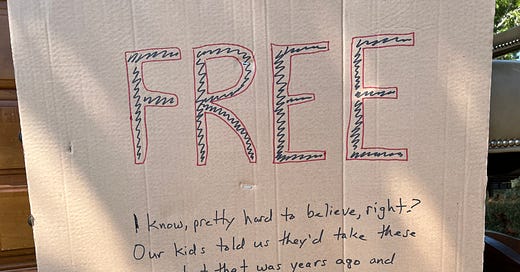 FREE
I know, pretty hard to believe, right?
Our kids told us they'd take these
but that was years ago and